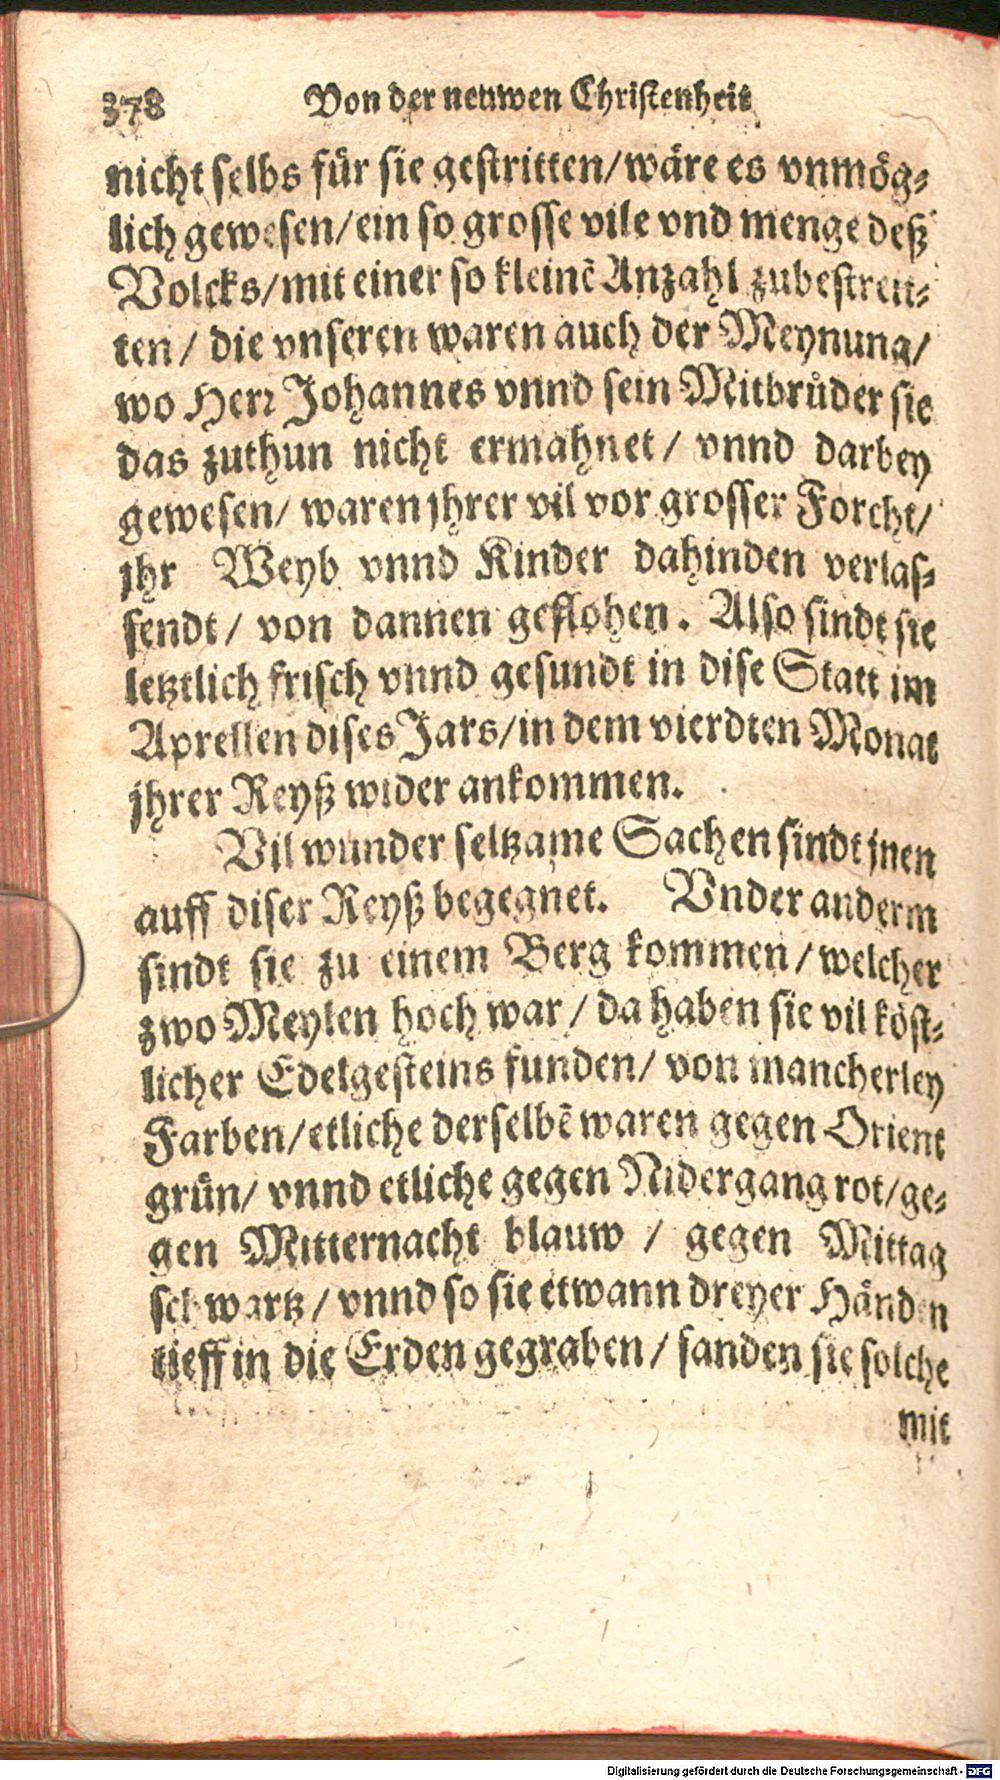 378 Von der neuwen Christenheit
nicht selbs für sie gestritten/wäre es vnmög⸗
lich gewesen/ein so grosse vile vnd menge deß
Volcks/mit einer so kleinẽ Anzahl zubestreit⸗
ten/ die vnseren waren auch der Meynung/
wo Herr Johannes vnnd sein Mitbrůder sie
das zuthun nicht ermahnet/ vnnd darbey
gewesen/ waren jhrer vil vor grosser Forcht/
jhr Weyb vnnd Kinder dahinden verlas⸗
sendt/ von dannen geflohen. Also sindt sie
letztlich frisch vnnd gesundt in dise Statt im
Aprellen dises Jars/in dem vierdten Monat
jhrer Reyß wider ankommen.
Vil wunder seltzame Sachen sindt jnen
auff diser Reyß begegnet. Vnder anderm
sindt sie zu einem Berg kommen/welcher
zwo Meylen hoch war/ da haben sie vil köst⸗
licher Edelgesteins funden/ von mancherley
Farben/etliche derselbẽ waren gegen Orient
grün/ vnnd etliche gegen Nidergang rot/ge⸗
gen Mitternacht blauw / gegen Mittag
schwartz/ vnnd so sie etwann dreyer Händen
tieff in die Erden gegraben/ fanden sie solche
mit
Digitalisierung gefördert durch die Deutsche Forschungsgemeinschaft - DFG